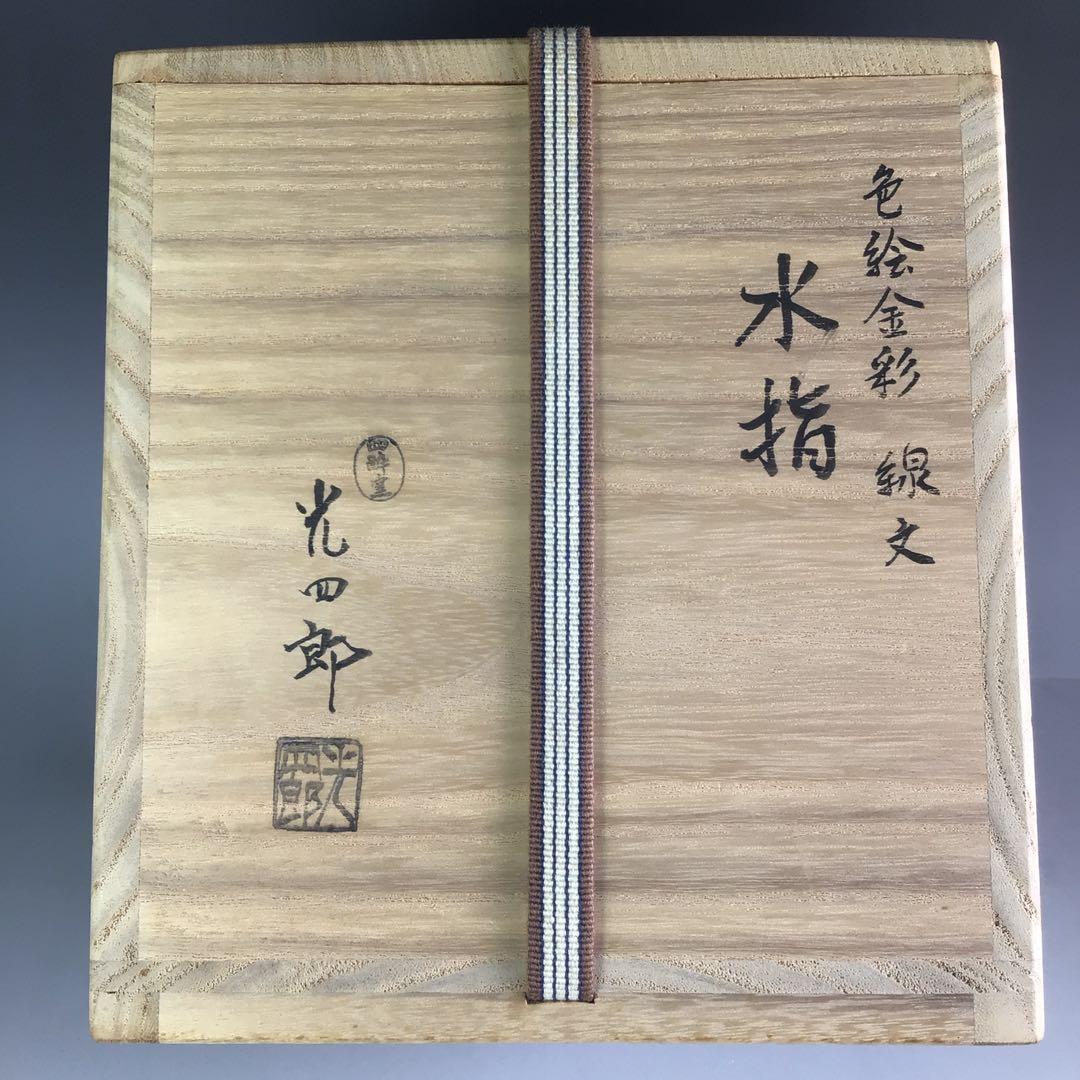 色絵金彩 線文
水指
光四郎
光四郎